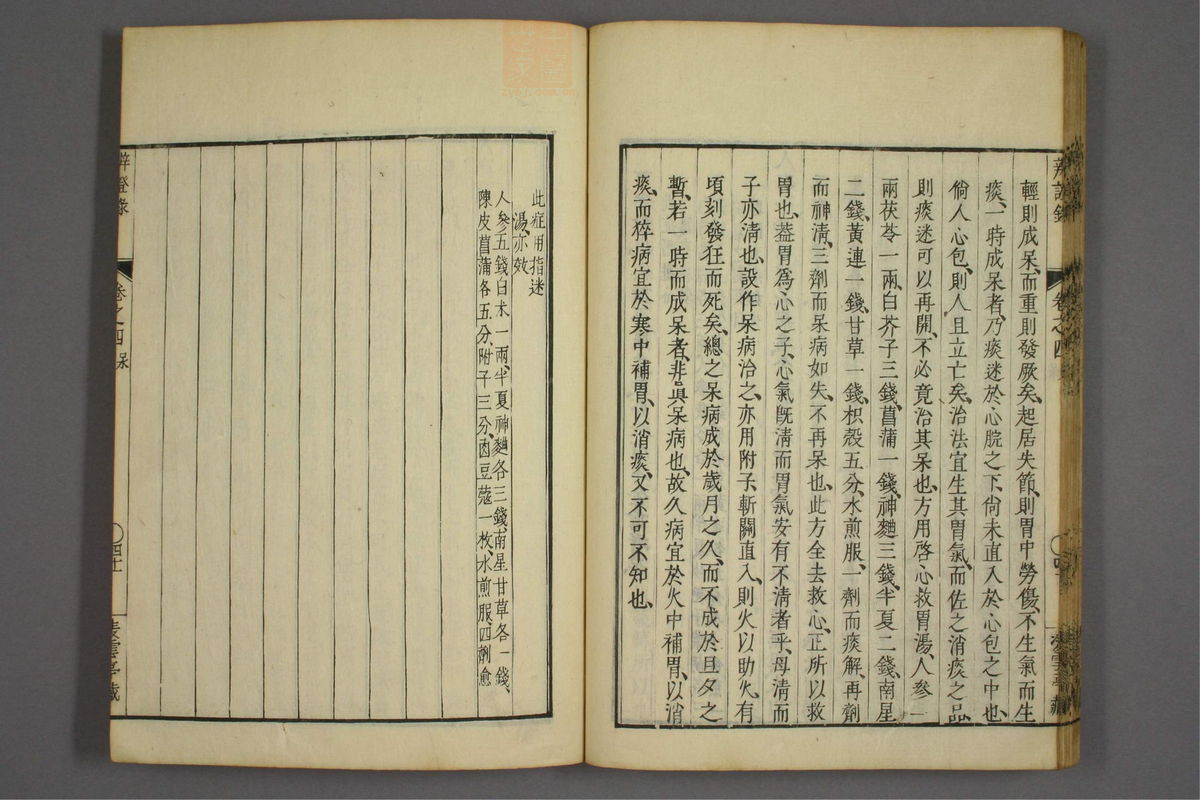 辨證錄 卷之四
輕則成呆、而重則發厥矣、起居失節、則胃中勞傷、不生氣而生
痰、一時成呆者、乃痰迷於心脘之下、尚未直入於心包之中也、
倘人心包、則人且立亡矣、治法宜生其胃氣、而佐之消痰之品、
則痰迷可以再開、不必竟治其呆也、方用啓心救胃湯、人參一
兩茯苓一兩、白芥子三錢、菖蒲一錢、神麯三錢、半夏二錢、南星
二錢、黃連一錢、甘草一錢、枳殼五分、水煎服、一劑而痰解、再劑
而神清、三劑而呆病如失、不再呆也、此方全去救心、正所以救
胃也、蓋胃爲心之子、心氣旣清而胃氣安有不清者乎、母清而
子亦清也、設作呆病治之、亦用附子、斬關直入、則火以助火、有
頃刻發狂而死矣、總之呆病成於歲月之久、而不成於旦夕之
暫、若一時而成呆者、非眞呆病也、故久病宜於火中補胃、以消
痰、而猝病宜於寒中補胃、以消痰、又不可不知也、
此症用指迷
湯、亦效
人參五錢白朮一兩、半夏神麯各三錢、南星甘草各一錢、
陳皮菖蒲各五分、附子三分、肉豆蔻一枚、水煎服、四劑愈
辨證錄 卷之四 呆